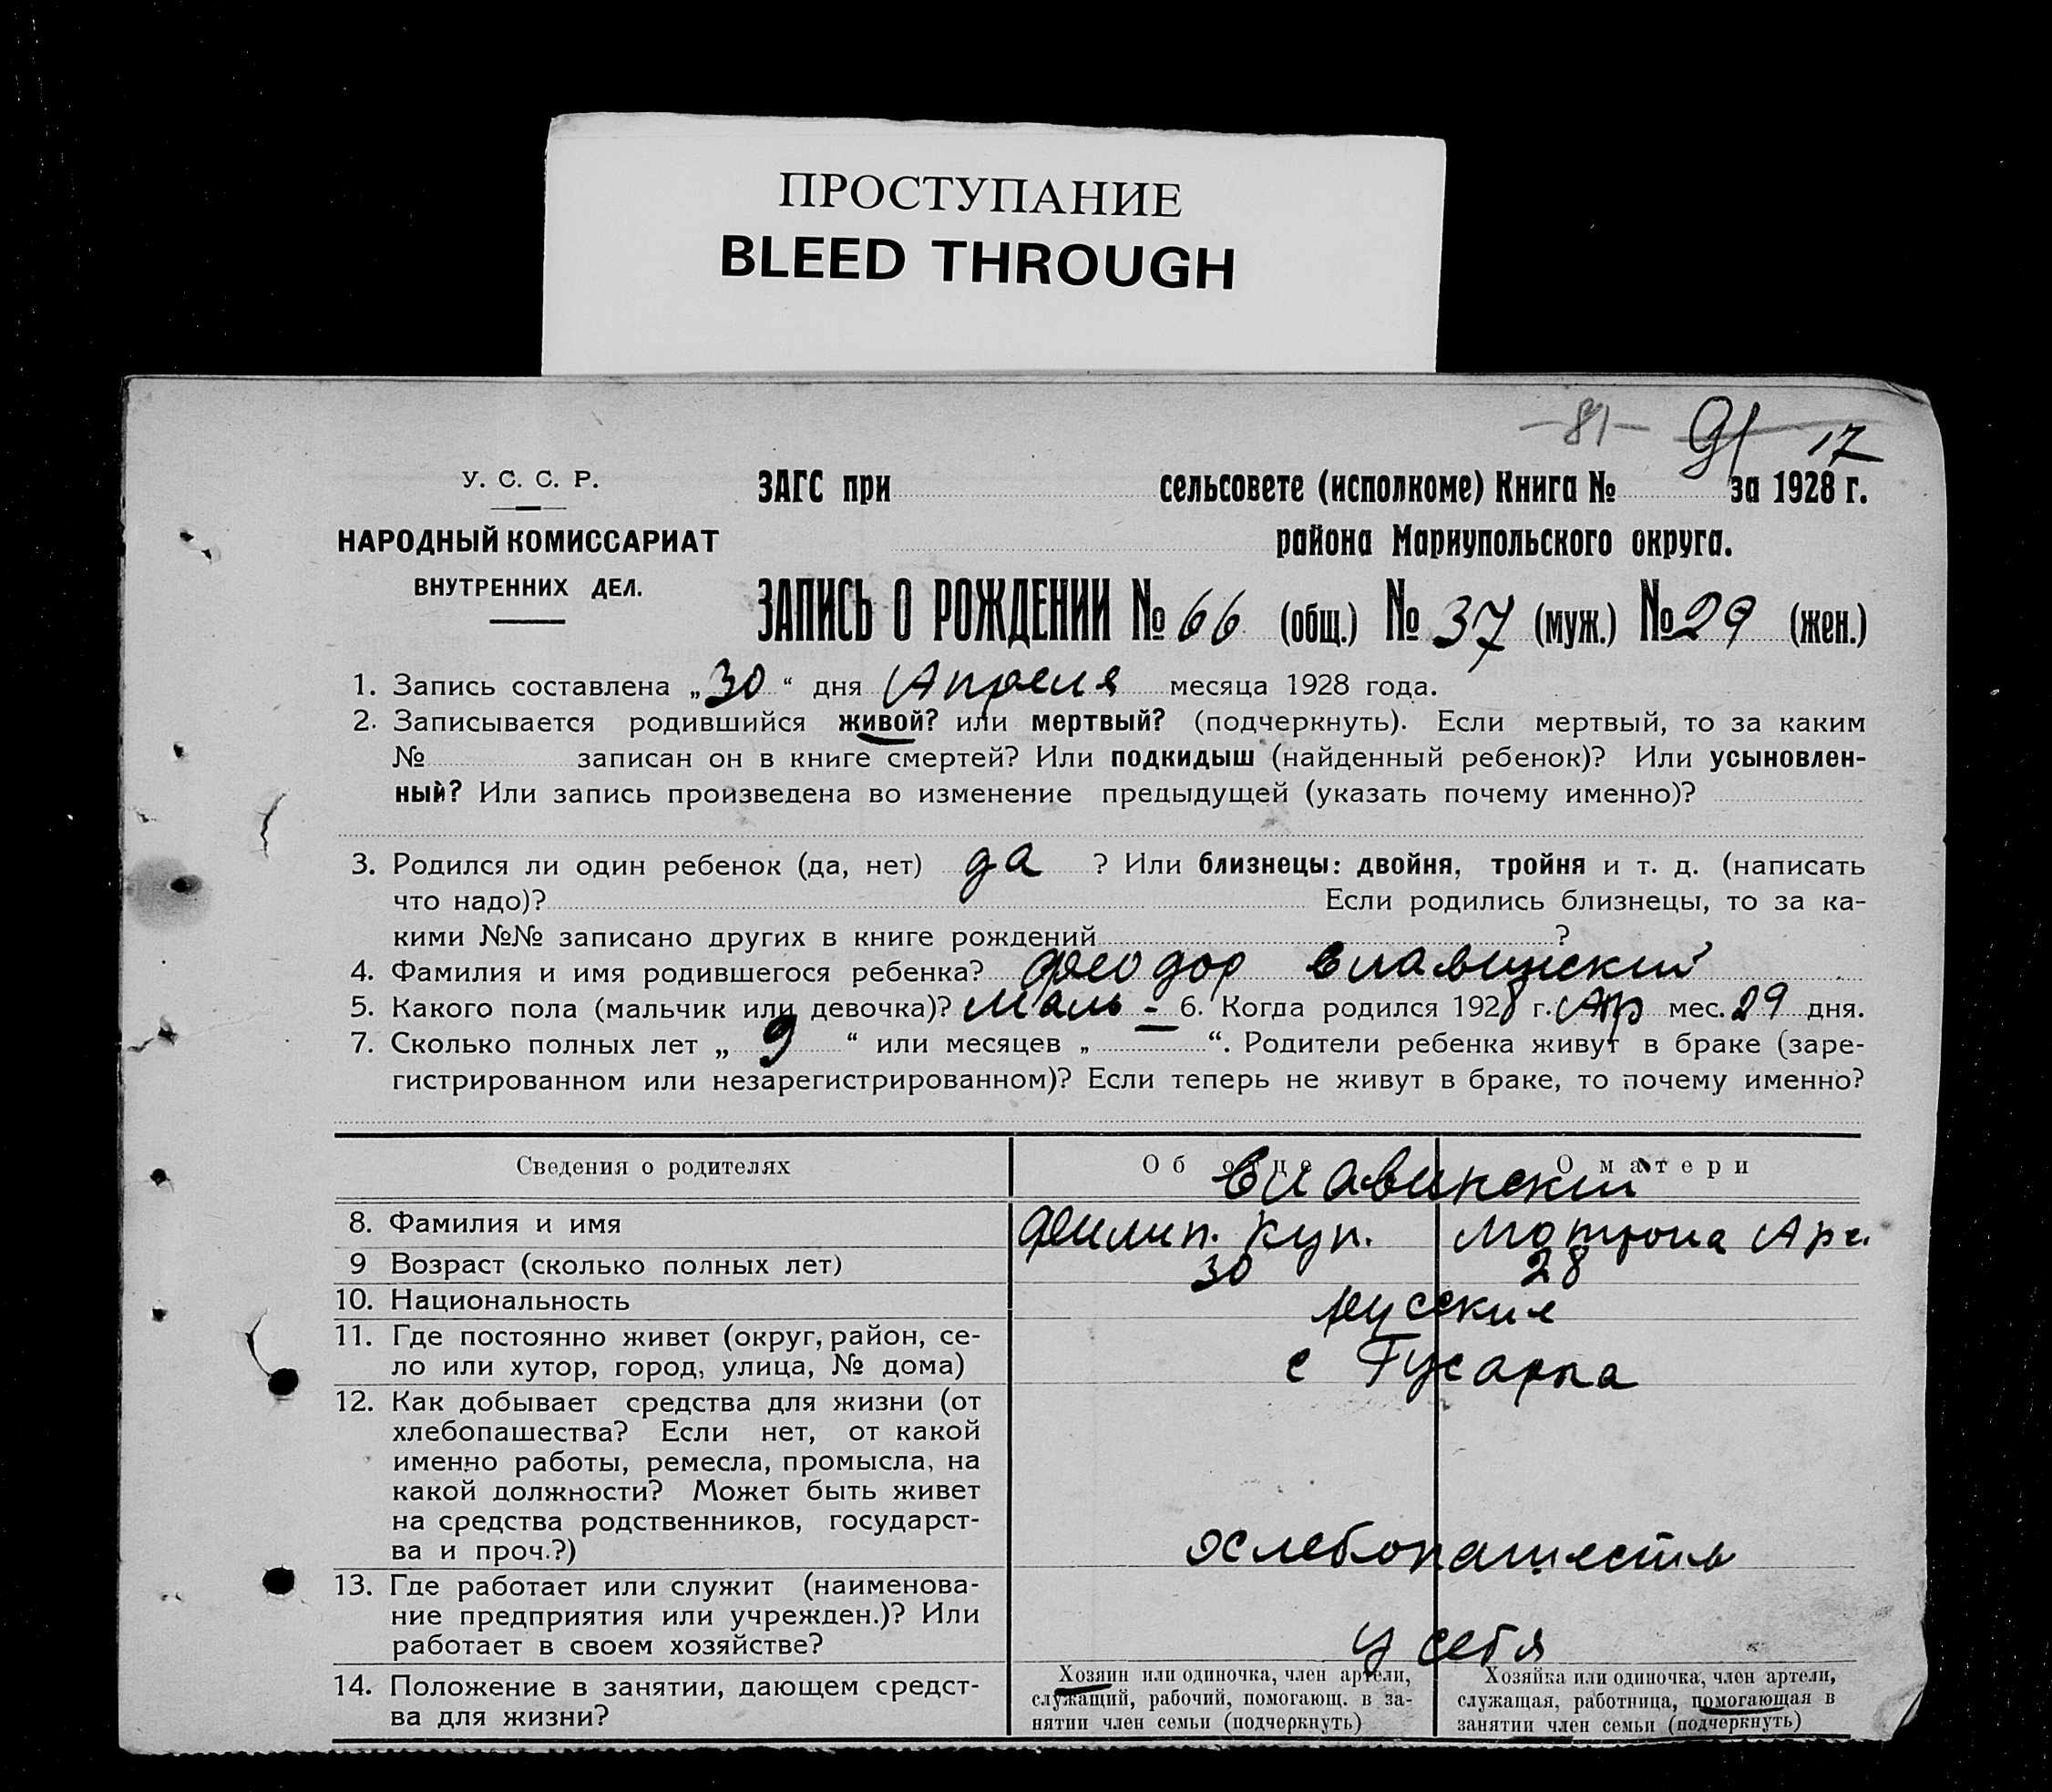 ПРОСТУПАНИЕ
BLEED THROUGH
-81- 91 17
У. С. С. Р.
НАРОДНЫЙ КОМИССАРИАТ
ВНУТРЕННИХ ДЕЛ.
ЗАГС при сельсовете (исполкоме) Книга № за 1928 г.
района Мариупольского округа.
ЗАПИСЬ О РОЖДЕНИИ № 66 (общ.) № 37 (муж.) № 29 (жен.)
1. Запись составлена „30“ дня Апреля месяца 1928 года.
2. Записывается родившийся живой? или мертвый? (подчеркнуть). Если мертвый, то за каким
№ записан он в книге смертей? Или подкидыш (найденный ребенок)? Или усыновлен-
ный? Или запись произведена во изменение предыдущей (указать почему именно)?
3. Родился ли один ребенок (да, нет) да ? Или близнецы: двойня, тройня и т. д. (написать
что надо)? Если родились близнецы, то за ка-
кими №№ записано других в книге рождений ?
4. Фамилия и имя родившегося ребенка? Феодор
5. Какого пола (мальчик или девочка)? Маль- 6. Когда родился 1928 г. Апр мес. 29 дня.
7. Сколько полных лет „9“ или месяцев „ “. Родители ребенка живут в браке (заре-
гистрированном или незарегистрированном)? Если теперь не живут в браке, то почему именно?
Сведения о родителях
Об отце
О матери
8. Фамилия и имя
Филип. Куп.
Мотрона Арх.
9 Возраст (сколько полных лет)
30
28
10. Национальность
русские
11. Где постоянно живет (округ, район, се-
ло или хутор, город, улица, № дома)
с
12. Как добывает средства для жизни (от
хлебопашества? Если нет, от какой
именно работы, ремесла, промысла, на
какой должности? Может быть живет
на средства родственников, государст-
ва и проч.?)
хлебопашеств
13. Где работает или служит (наименова-
ние предприятия или учрежден.)? Или
работает в своем хозяйстве?
у себя
14. Положение в занятии, дающем средст-
ва для жизни?
Хозяин или одиночка, член артели,
служащий, рабочий, помогающ. в за-
нятии член семьи (подчеркнуть)
Хозяйка или одиночка, член артели,
служащая, работница, помогающая в
занятии член семьи (подчеркнуть)